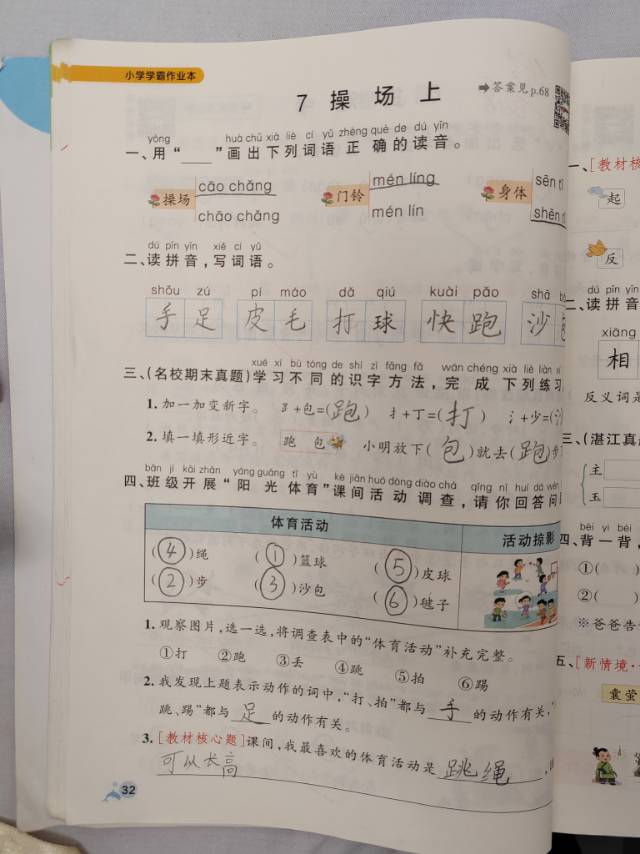 小学学霸作业本
7 操 场 上
➡答案见 p.68
yòng huà chū xià liè cí yǔ zhèng què de dú yīn
一、用“____”画出下列词语正确的读音。
操场 cāo chǎng chāo chǎng
门铃 mén líng mén lín
身体 sēn shēn
dú pīn yīn xiě cí yǔ
二、读拼音，写词语。
shǒu zú pí máo dǎ qiú kuài pǎo shā
手足 皮毛 打球 快跑 沙
xué xí bù tóng de shí zì fāng fǎ wán chéng xià liè liàn
三、(名校期末真题)学习不同的识字方法，完成下列练习
1. 加一加变新字。 ⻊+包=(跑) 扌+丁=(打) 氵+少=(沙
2. 填一填形近字。 跑 包 小明放下(包)就去(跑)步
bān jí kāi zhǎn yáng guāng tǐ yù kè jiān huó dòng diào chá qǐng nǐ huí dá wèn
四、班级开展“阳光体育”课间活动调查，请你回答问
体育活动 活动掠影
(④)绳 (①)篮球 (⑤)皮球
(②)步 (③)沙包 (⑥)毽子
1. 观察图片，选一选，将调查表中的“体育活动”补充完整。
①打 ②跑 ③丢 ④跳 ⑤拍 ⑥踢
2. 我发现上题表示动作的词中，“打、拍”都与 手 的动作有关，“
跳、踢”都与 足 的动作有关。
3. [教材核心题]课间，我最喜欢的体育活动是 跳绳 ，
可以长高
32
一、[教材核
起
反
dú pīn yīn
二、读拼音
xiāng
相
反义词是
三、(湛江真
主
玉
bèi yi bèi
四、背一背，
①(
②(
※爸爸告
五、[新情境·
囊萤